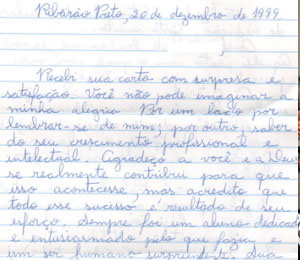 Ribeirão Preto, 20 de dezembro de 1999.
Recebi sua carta com surpresa e
satisfação. Você não pode imaginar a
minha alegria. Por um lado por
lembrar-se de mim; por outro, saber
do seu crescimento profissional e
intelectual. Agradeço a você e a Deus
se realmente contribui para que
isso acontecesse, mas acredito que
todo esse sucesso é resultado de seu
esforço. Sempre foi um aluno dedicado
e entusiasmado pelo que fazia, e
um ser humano surpreendente. Sua